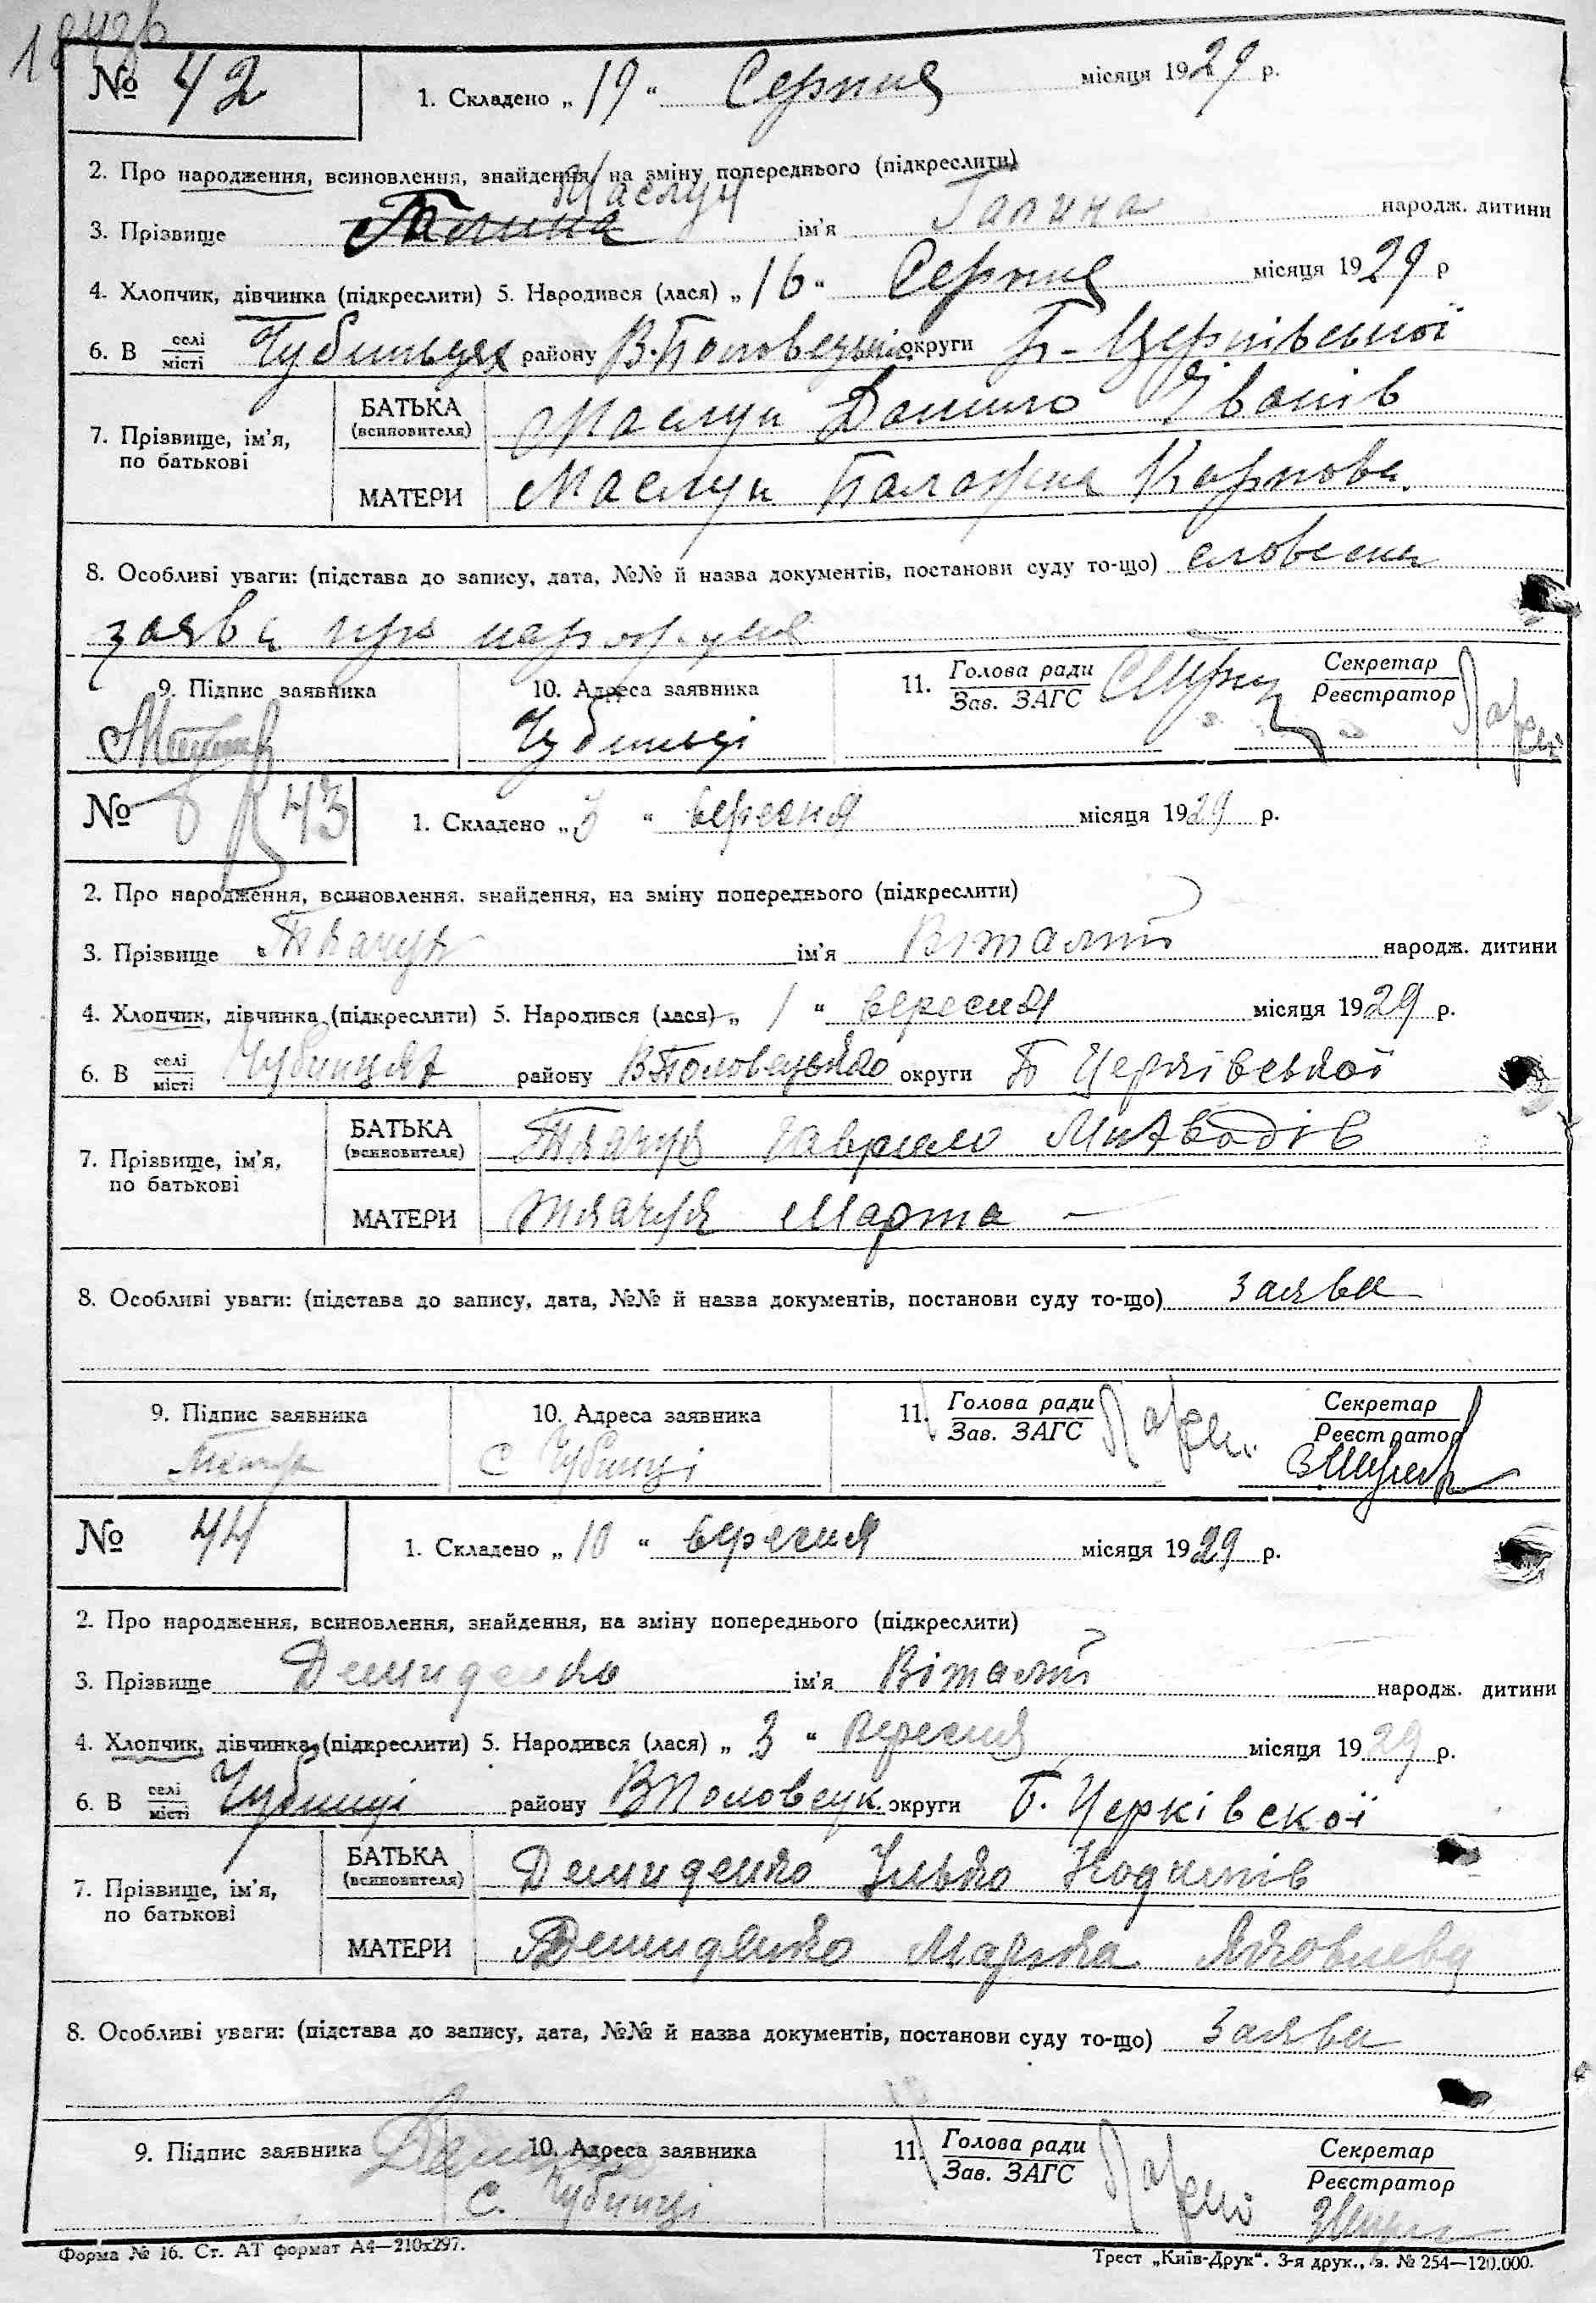 № 42
1. Складено „19“ Серпня місяця 1929 р.
2. Про народження, всиновлення, знайдення, на зміну попереднього (підкреслити)
Маслун
3. Прізвище Галина ім'я Галина народж. дитини
4. Хлопчик, дівчинка (підкреслити) 5. Народився (лася) „16“ Серпня місяця 1929 р
6. В селі/місті Чубинцях району В.Половецьк. округи Б-Церківської
7. Прізвище, ім'я, по батькові
БАТЬКА (всиновителя) Маслун Данило Іванів
МАТЕРИ Маслун Палажка Карпова.
8. Особливі уваги: (підстава до запису, дата, №№ й назва документів, постанови суду то-що) словесна
заява про народження
9. Підпис заявника 10. Адреса заявника 11. Голова ради/Зав. ЗАГС Секретар/Реєстратор
Чубинці
№ 43
1. Складено „3“ вересня місяця 1929 р.
2. Про народження, всиновлення. знайдення, на зміну попереднього (підкреслити)
3. Прізвище Ткачук ім'я Віталій народж. дитини
4. Хлопчик, дівчинка (підкреслити) 5. Народився (лася) „1“ вересня місяця 1929 р.
6. В селі/місті Чубинцях району В.Половецького округи Б Церківської
7. Прізвище, ім'я, по батькові
БАТЬКА (всиновителя) Ткачук Гаврило
МАТЕРИ Ткачук Марта —
8. Особливі уваги: (підстава до запису, дата, №№ й назва документів, постанови суду то-що) Заява
9. Підпис заявника 10. Адреса заявника 11. Голова ради/Зав. ЗАГС Секретар/Реєстратор
Ткачук С Чубинці
№ 44
1. Складено „10“ вересня місяця 1929 р.
2. Про народження, всиновлення, знайдення, на зміну попереднього (підкреслити)
3. Прізвище Демиденко ім'я Віталій народж. дитини
4. Хлопчик, дівчинка (підкреслити) 5. Народився (лася) „3“ Вересня місяця 1929 р.
6. В селі/місті Чубинці району В Половецк. округи Б. Церківскої
7. Прізвище, ім'я, по батькові
БАТЬКА (всиновителя) Демиденко Ілько
МАТЕРИ Демиденко Марька Яковлева
8. Особливі уваги: (підстава до запису, дата, №№ й назва документів, постанови суду то-що) Заява
9. Підпис заявника 10. Адреса заявника 11. Голова ради/Зав. ЗАГС Секретар/Реєстратор
С. Чубинці
Форма № 16. Ст. АТ формат А4—210х297.
Трест „Київ-Друк“. 3-я друк., з. № 254—120.000.